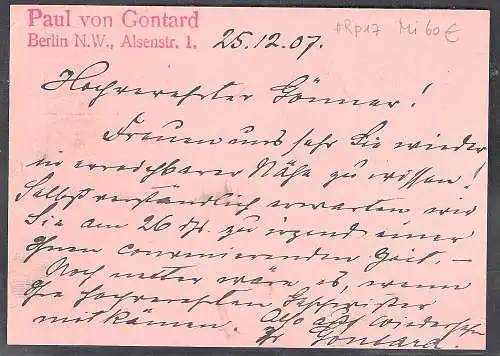 Paul von Gontard
Berlin N.W., Alsenstr. 1.
25.12.07.
#Rp17 Mi 60 €
Hochverehrter Gönner!
Freuen uns sehr Sie wieder
in erreichbarer Nähe zu wissen!
Selbstverständlich erwarten wir
Sie am 26 ds. zu irgend einer
Ihnen convenierenden Zeit. –
Noch netter wäre es, wenn
Ihre hochverehrten
mitkämen. Also auf Wiedersehn
Gontard.